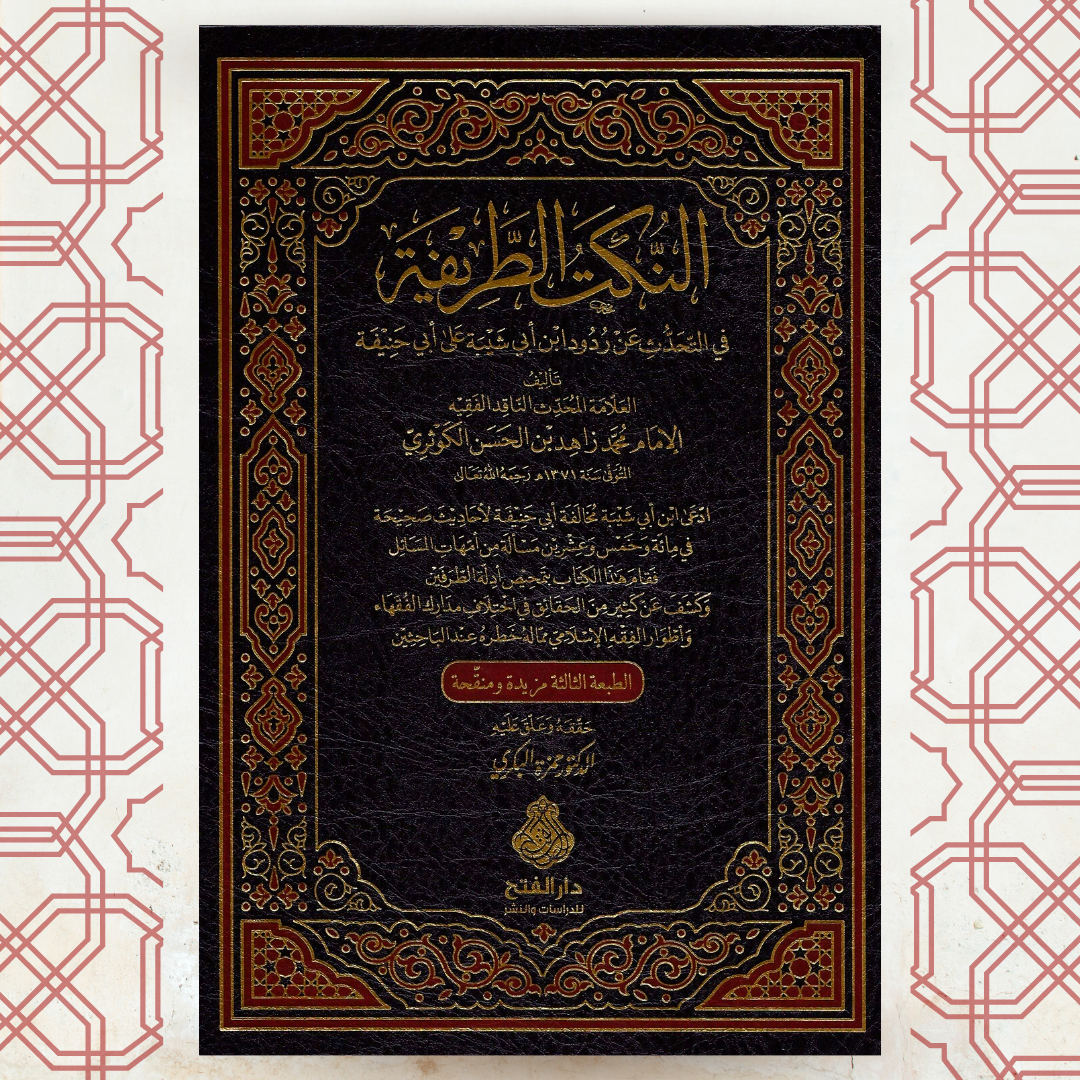 النُّكَتُ الطَّرِيْفَة
في التَّحَدُّث عَنْ رُدُود ابْن أَبي شَيْبَة عَلىٰ أَبي حَنِيْفَة
تَأْلِيْفُ
العَلَّامَة المُحَدِّث النَّاقِد الفَقِيْه
الإِمَام مُحَمَّد زَاهِد بْن الحَسَن الكَوْثَرِيّ
المُتَوَفَّى سَنَة ١٣٧١هـ رَحِمَهُ اللهُ تَعَالى
ادَّعَى ابْن أَبي شَيْبَة مُخَالَفَة أَبي حَنِيْفَة لأَحَادِيْثَ صَحِيْحَة
في مِائَة وَخَمْس وَعِشْرِيْن مَسْأَلَة مِن أُمَّهَات المَسَائِل
فَقَامَ هَذَا الكِتَاب بِتَمْحِيْص أَدِلَّة الطَّرَفَيْن
وَكَشَفَ عَن كَثِيْر مِنَ الحَقَائِق في اخْتِلَاف مَدَارِك الفُقَهَاء
وَأَطْوَار الفِقْه الإِسْلَامِيّ مِمَّا لَهُ خَطَرُهُ عِنْدَ البَاحِثِيْن
الطبعة الثالثة مزيدة ومنقّحة
حَقَّقَهُ وَعَلَّقَ عَلَيْهِ
الدكتور حمزة البكري
دار الفتح
للدراسات والنشر